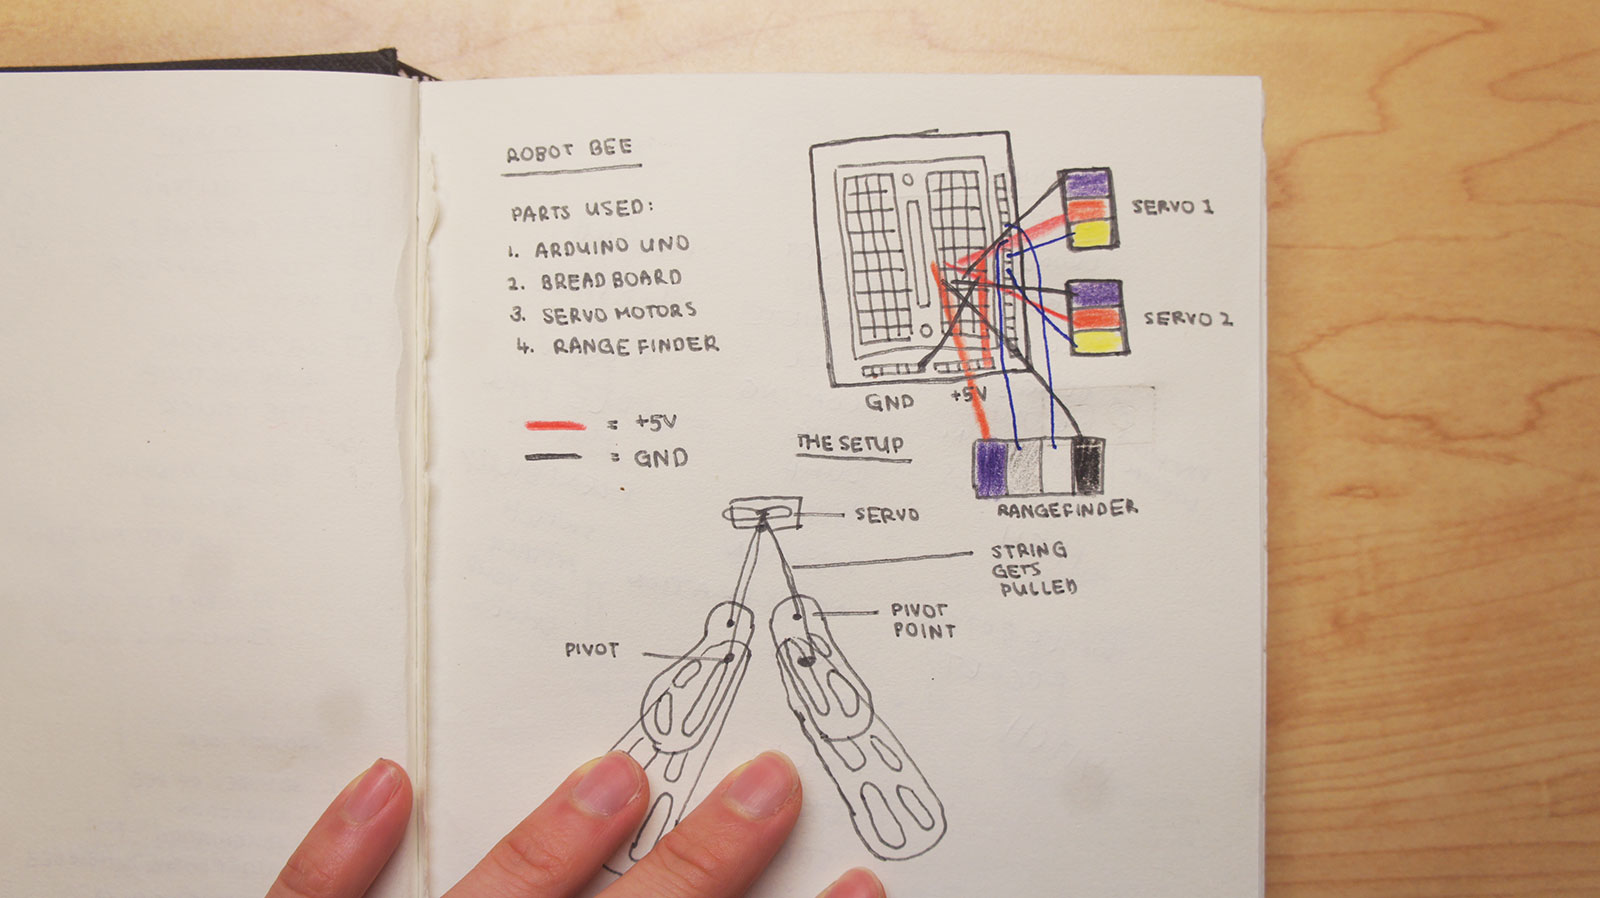 ROBOT BEE
PARTS USED:
1. ARDUINO UNO
2. BREADBOARD
3. SERVO MOTORS
4. RANGEFINDER
= +5V
= GND
SERVO 1
SERVO 2
GND +5V
THE SETUP
RANGEFINDER
SERVO
STRING
GETS
PULLED
PIVOT
POINT
PIVOT